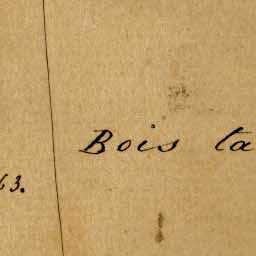 Bois ta
63.